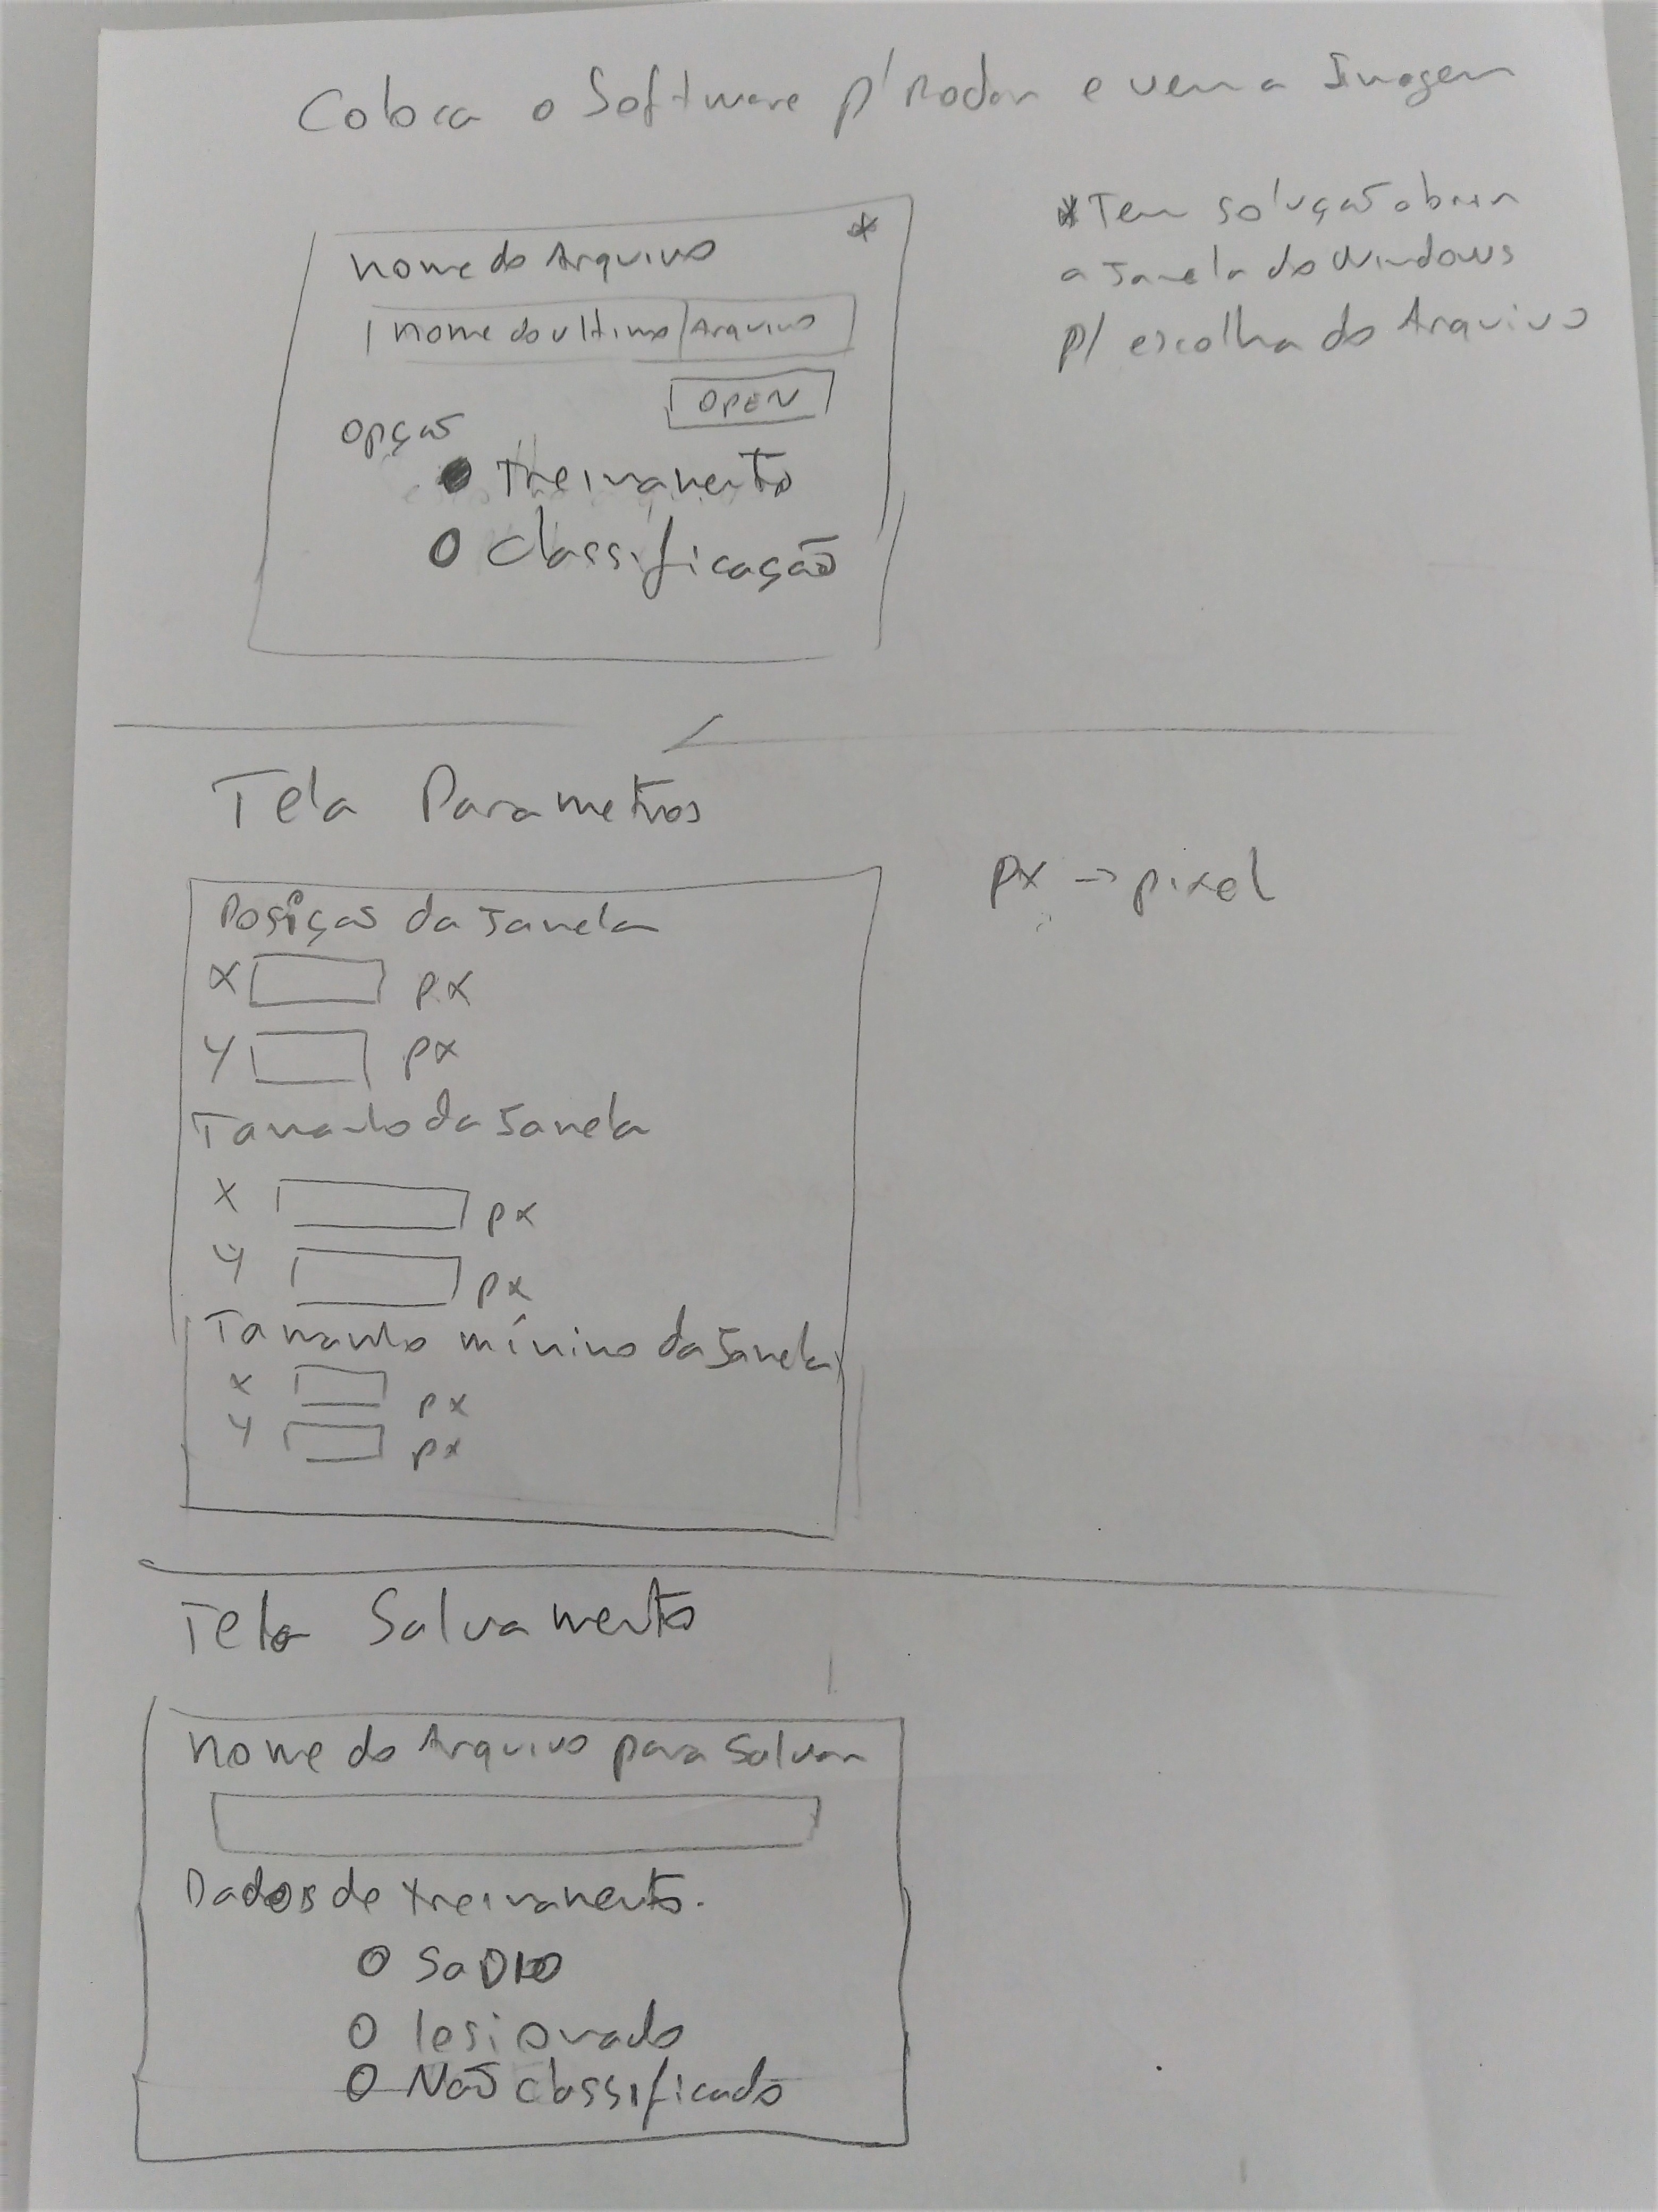 Coloca o Software p/ Rodar e vem a Imagem
nome do Arquivo *
nome do ultimo Arquivo
OPEN
opção
Treinamento
Classificação
* Tem solução abrir
a Janela do Windows
p/ escolha do Arquivo
Tela Parametros
px → pixel
Posição da Janela
X px
Y px
Tamanho da Janela
X px
Y px
Tamanho mínimo da Janela
X px
Y px
Tela Salvamento
nome do Arquivo para Salvar
Dados de treinamento.
SaDIO
lesionado
Não classificado